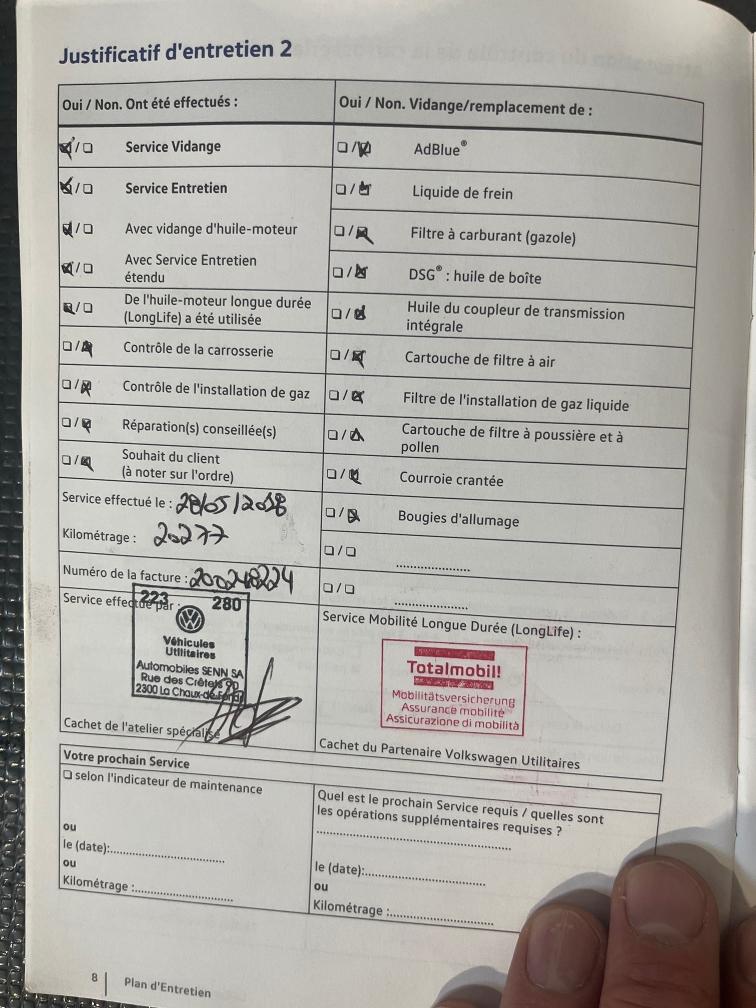 Justificatif d'entretien 2
Oui / Non. Ont été effectués :
☑/☐ Service Vidange
☑/☐ Service Entretien
☑/☐ Avec vidange d'huile-moteur
☑/☐ Avec Service Entretien
étendu
☑/☐ De l'huile-moteur longue durée
(LongLife) a été utilisée
☐/☑ Contrôle de la carrosserie
☐/☑ Contrôle de l'installation de gaz
☐/☑ Réparation(s) conseillée(s)
☐/☑ Souhait du client
(à noter sur l'ordre)
Service effectué le : 28/05/2018
Kilométrage : 20277
Numéro de la facture : 200248224
Service effectué par :
223 280
Véhicules
Utilitaires
Automobiles SENN SA
Rue des Crêtets 90
2300 La Chaux-de-Fonds
Cachet de l'atelier spécialisé
Oui / Non. Vidange/remplacement de :
☐/☑ AdBlue®
☐/☑ Liquide de frein
☐/☑ Filtre à carburant (gazole)
☐/☑ DSG® : huile de boîte
☐/☑ Huile du coupleur de transmission
intégrale
☐/☑ Cartouche de filtre à air
☐/☑ Filtre de l'installation de gaz liquide
☐/☑ Cartouche de filtre à poussière et à
pollen
☐/☑ Courroie crantée
☐/☑ Bougies d'allumage
☐/☐ ....................
☐/☐ ....................
Service Mobilité Longue Durée (LongLife) :
Totalmobil!
Mobilitätsversicherung
Assurance mobilité
Assicurazione di mobilità
Cachet du Partenaire Volkswagen Utilitaires
Votre prochain Service
☐ selon l'indicateur de maintenance
ou
le (date):..............................
ou
Kilométrage :..........................
Quel est le prochain Service requis / quelles sont
les opérations supplémentaires requises ?
..................................................
le (date):..............................
ou
Kilométrage :..........................
8 | Plan d'Entretien